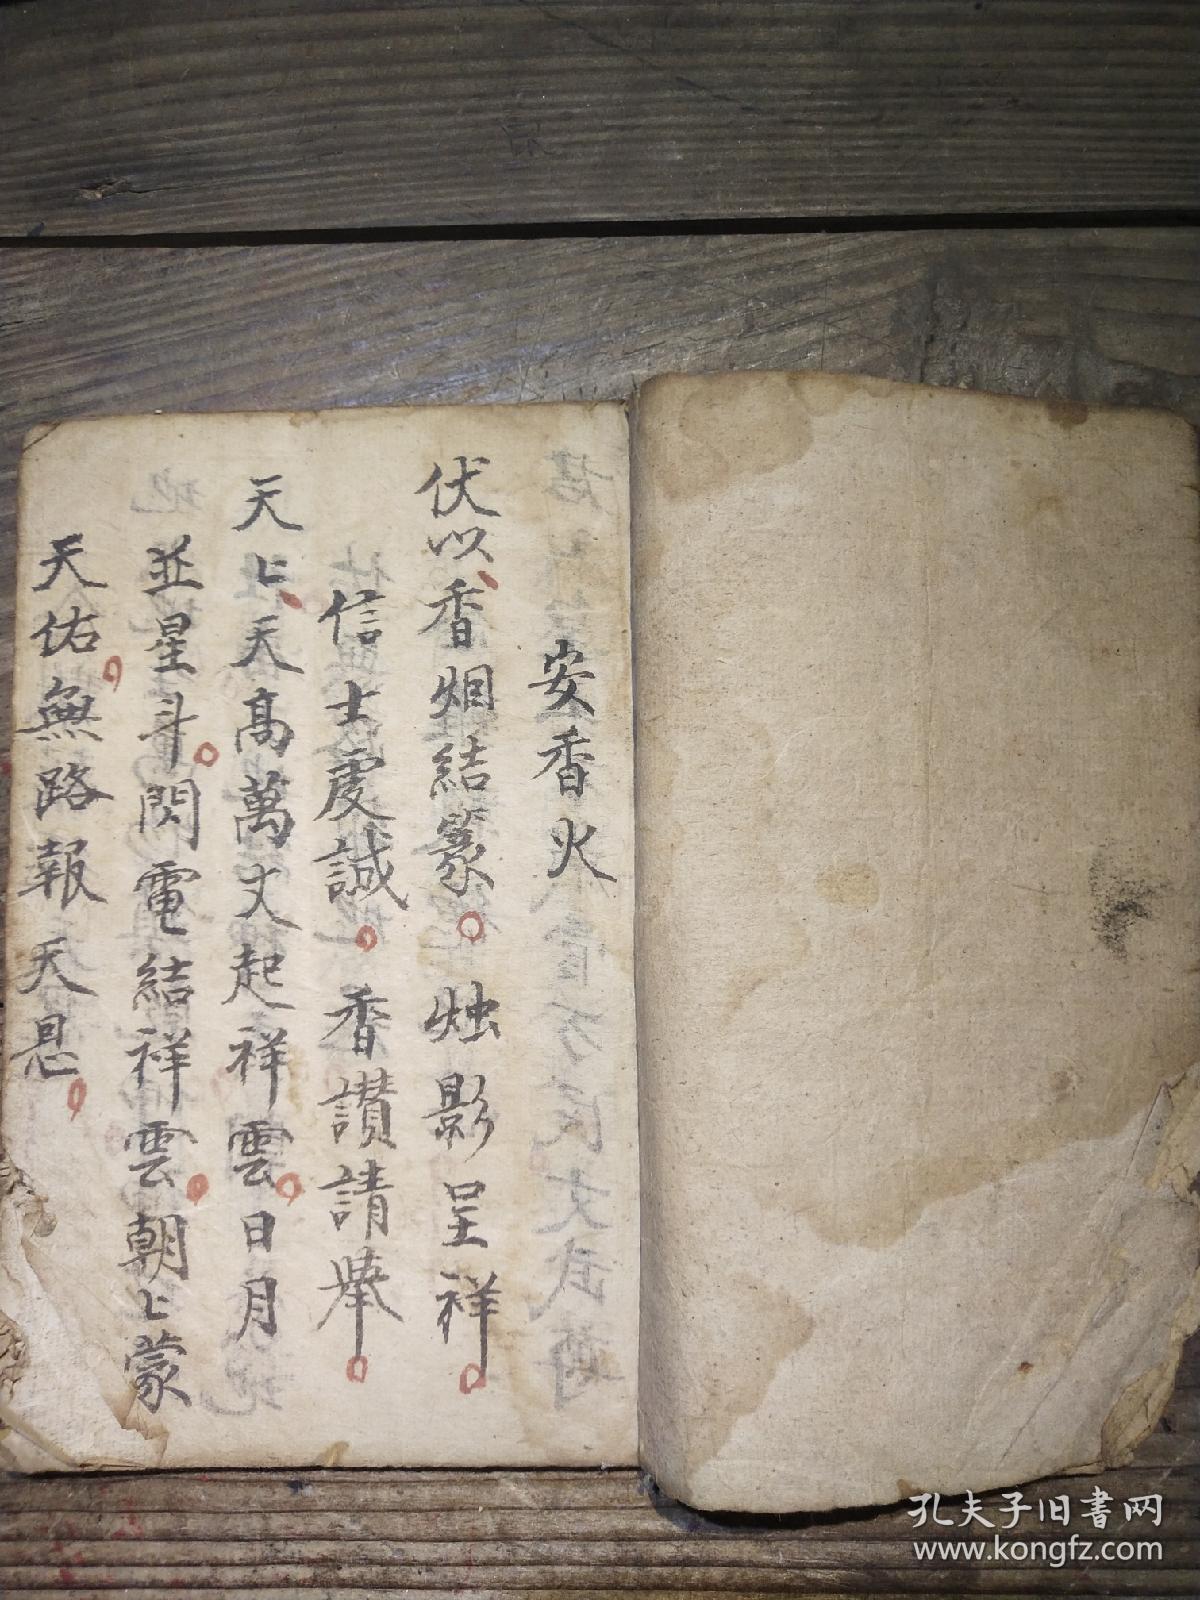 安香火
伏以香烟結篆烛影呈祥
信士虔誠香讚請舉
天上天高萬丈起祥雲日月
並星斗閃電結祥雲朝上蒙
天佑無路報天恩
孔夫子旧书网
www.kongfz.com